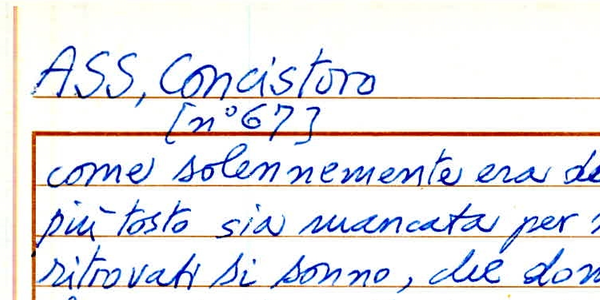 ASS, Concistoro
[n° 67]
come solennemente era de
più tosto sia mancata per
ritrovati si sonno, che don